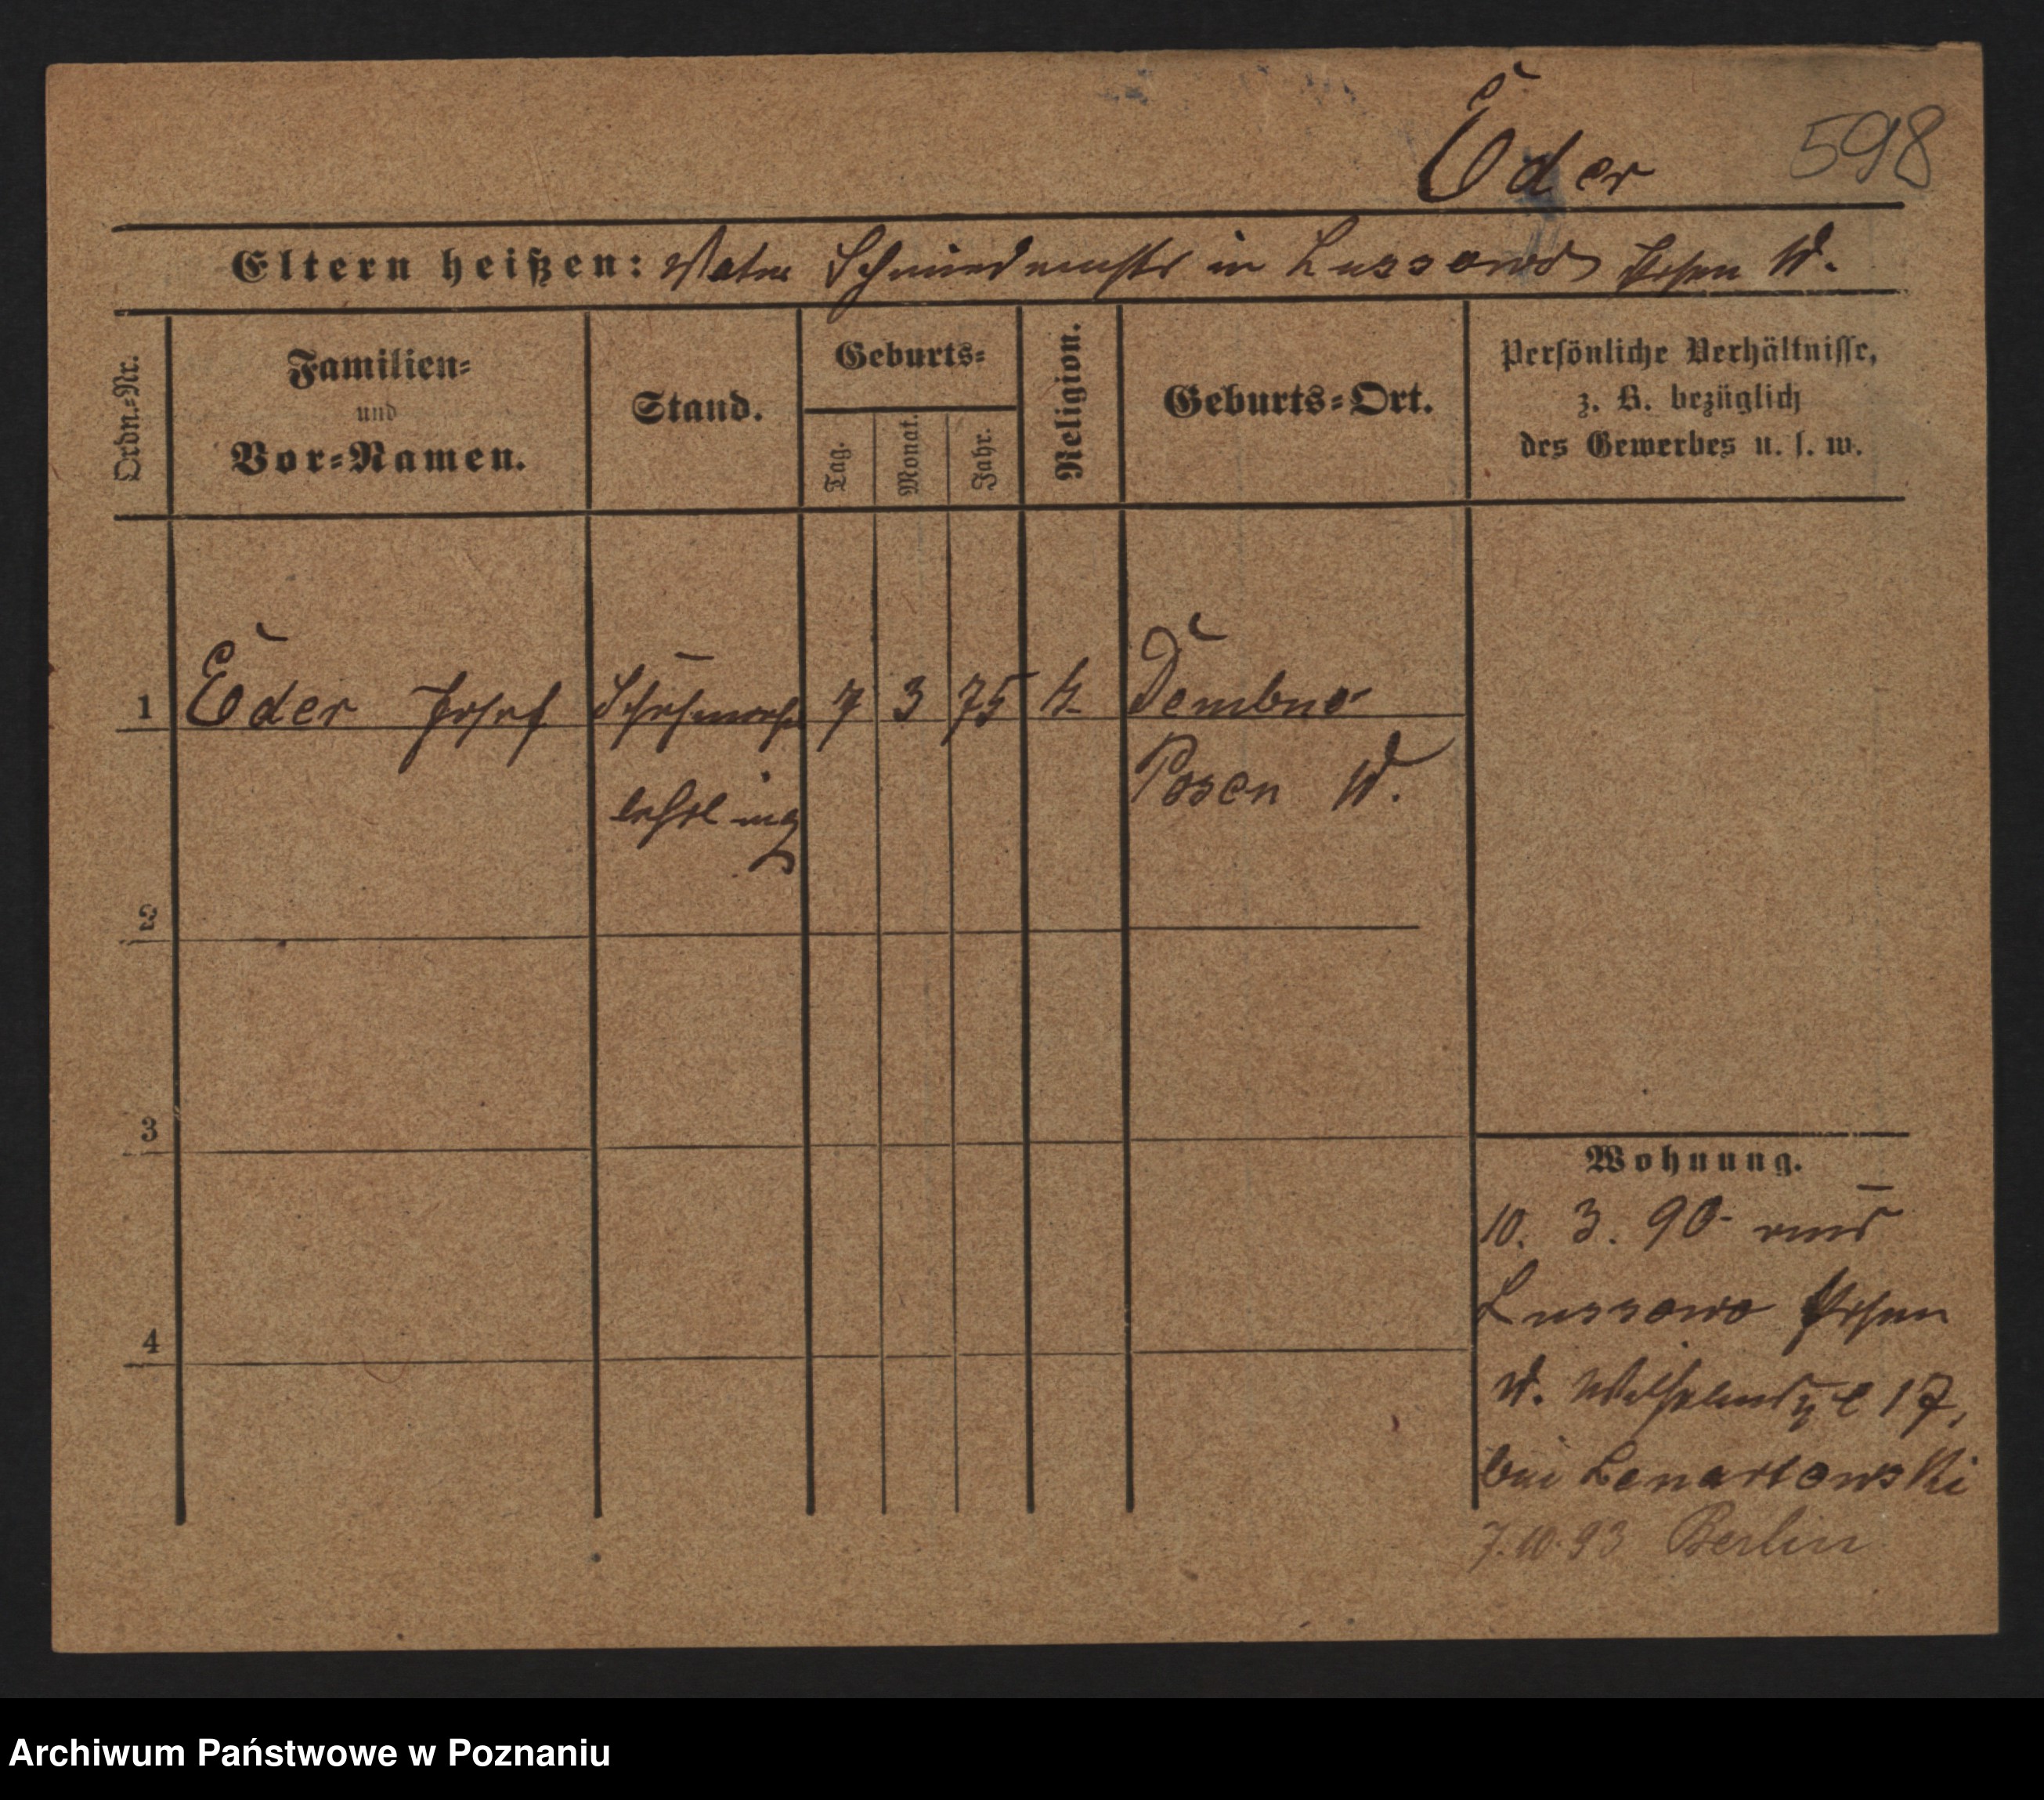 Eder 598
Eltern heißen: Vater Schmiedemstr in Lussowo Posen W.
Ordn.-Nr.
Familien-
und
Vor-Namen.
Stand.
Geburts-
Tag.
Monat.
Jahr.
Religion.
Geburts-Ort.
Persönliche Verhältnisse,
z. B. bezüglich
des Gewerbes u. s. w.
1 Eder Josef Schuhmach 7 3 75 k Dembno
lehrling Posen W.
2
3
4
Wohnung.
10. 3. 90 aus
Lussowo Posen
W. 17,
bei Lenartowski
7.10.93 Berlin
Archiwum Państwowe w Poznaniu